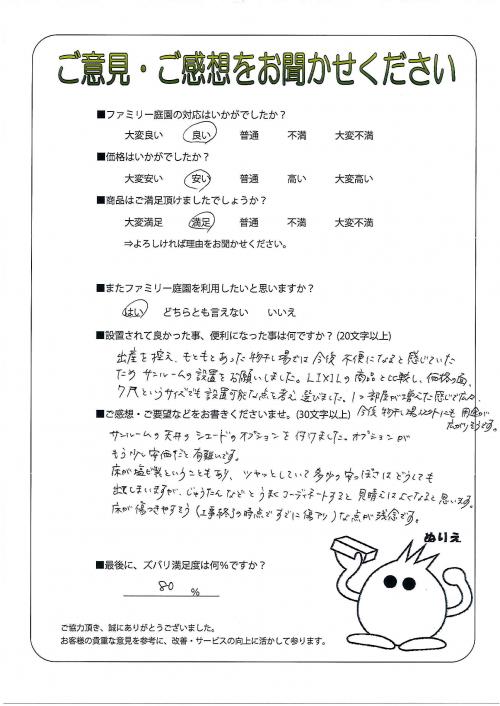 ご意見・ご感想をお聞かせください
■ファミリー庭園の対応はいかがでしたか？
大変良い 良い 普通 不満 大変不満
■価格はいかがでしたか？
大変安い 安い 普通 高い 大変高い
■商品はご満足頂けましたでしょうか？
大変満足 満足 普通 不満 大変不満
⇒よろしければ理由をお聞かせください。
■またファミリー庭園を利用したいと思いますか？
はい どちらとも言えない いいえ
■設置されて良かった事、便利になった事は何ですか？(20文字以上)
出産を控え、もともとあった物干し場では今後不便になると感じていた
ためサンルームの設置をお願いしました。LIXILの商品と比較し、価格の面、
7尺というサイズでも設置可能な点を考え選びました。1つ部屋が増えた感じで広々、
今後物干し場以外にも用途が
広がりそうです。
■ご感想・ご要望などをお書きくださいませ。(30文字以上)
サンルームの天井のシェードのオプションを付けました。オプションが
もう少し安価だと有難いです。
床が塩ビ製ということもあり、ツヤっとしていて多少の安っぽさはどうしても
出てしまいますが、じゅうたんなどとうまくコーディネートすると見晴えはよくなると思います。
床が傷つきやすそう(工事終了の時点ですでに傷アリ)な点が残念です。
ぬりえ
■最後に、ズバリ満足度は何％ですか？
80 ％
ご協力頂き、誠にありがとうございました。
お客様の貴重な意見を参考に、改善・サービスの向上に活かして参ります。